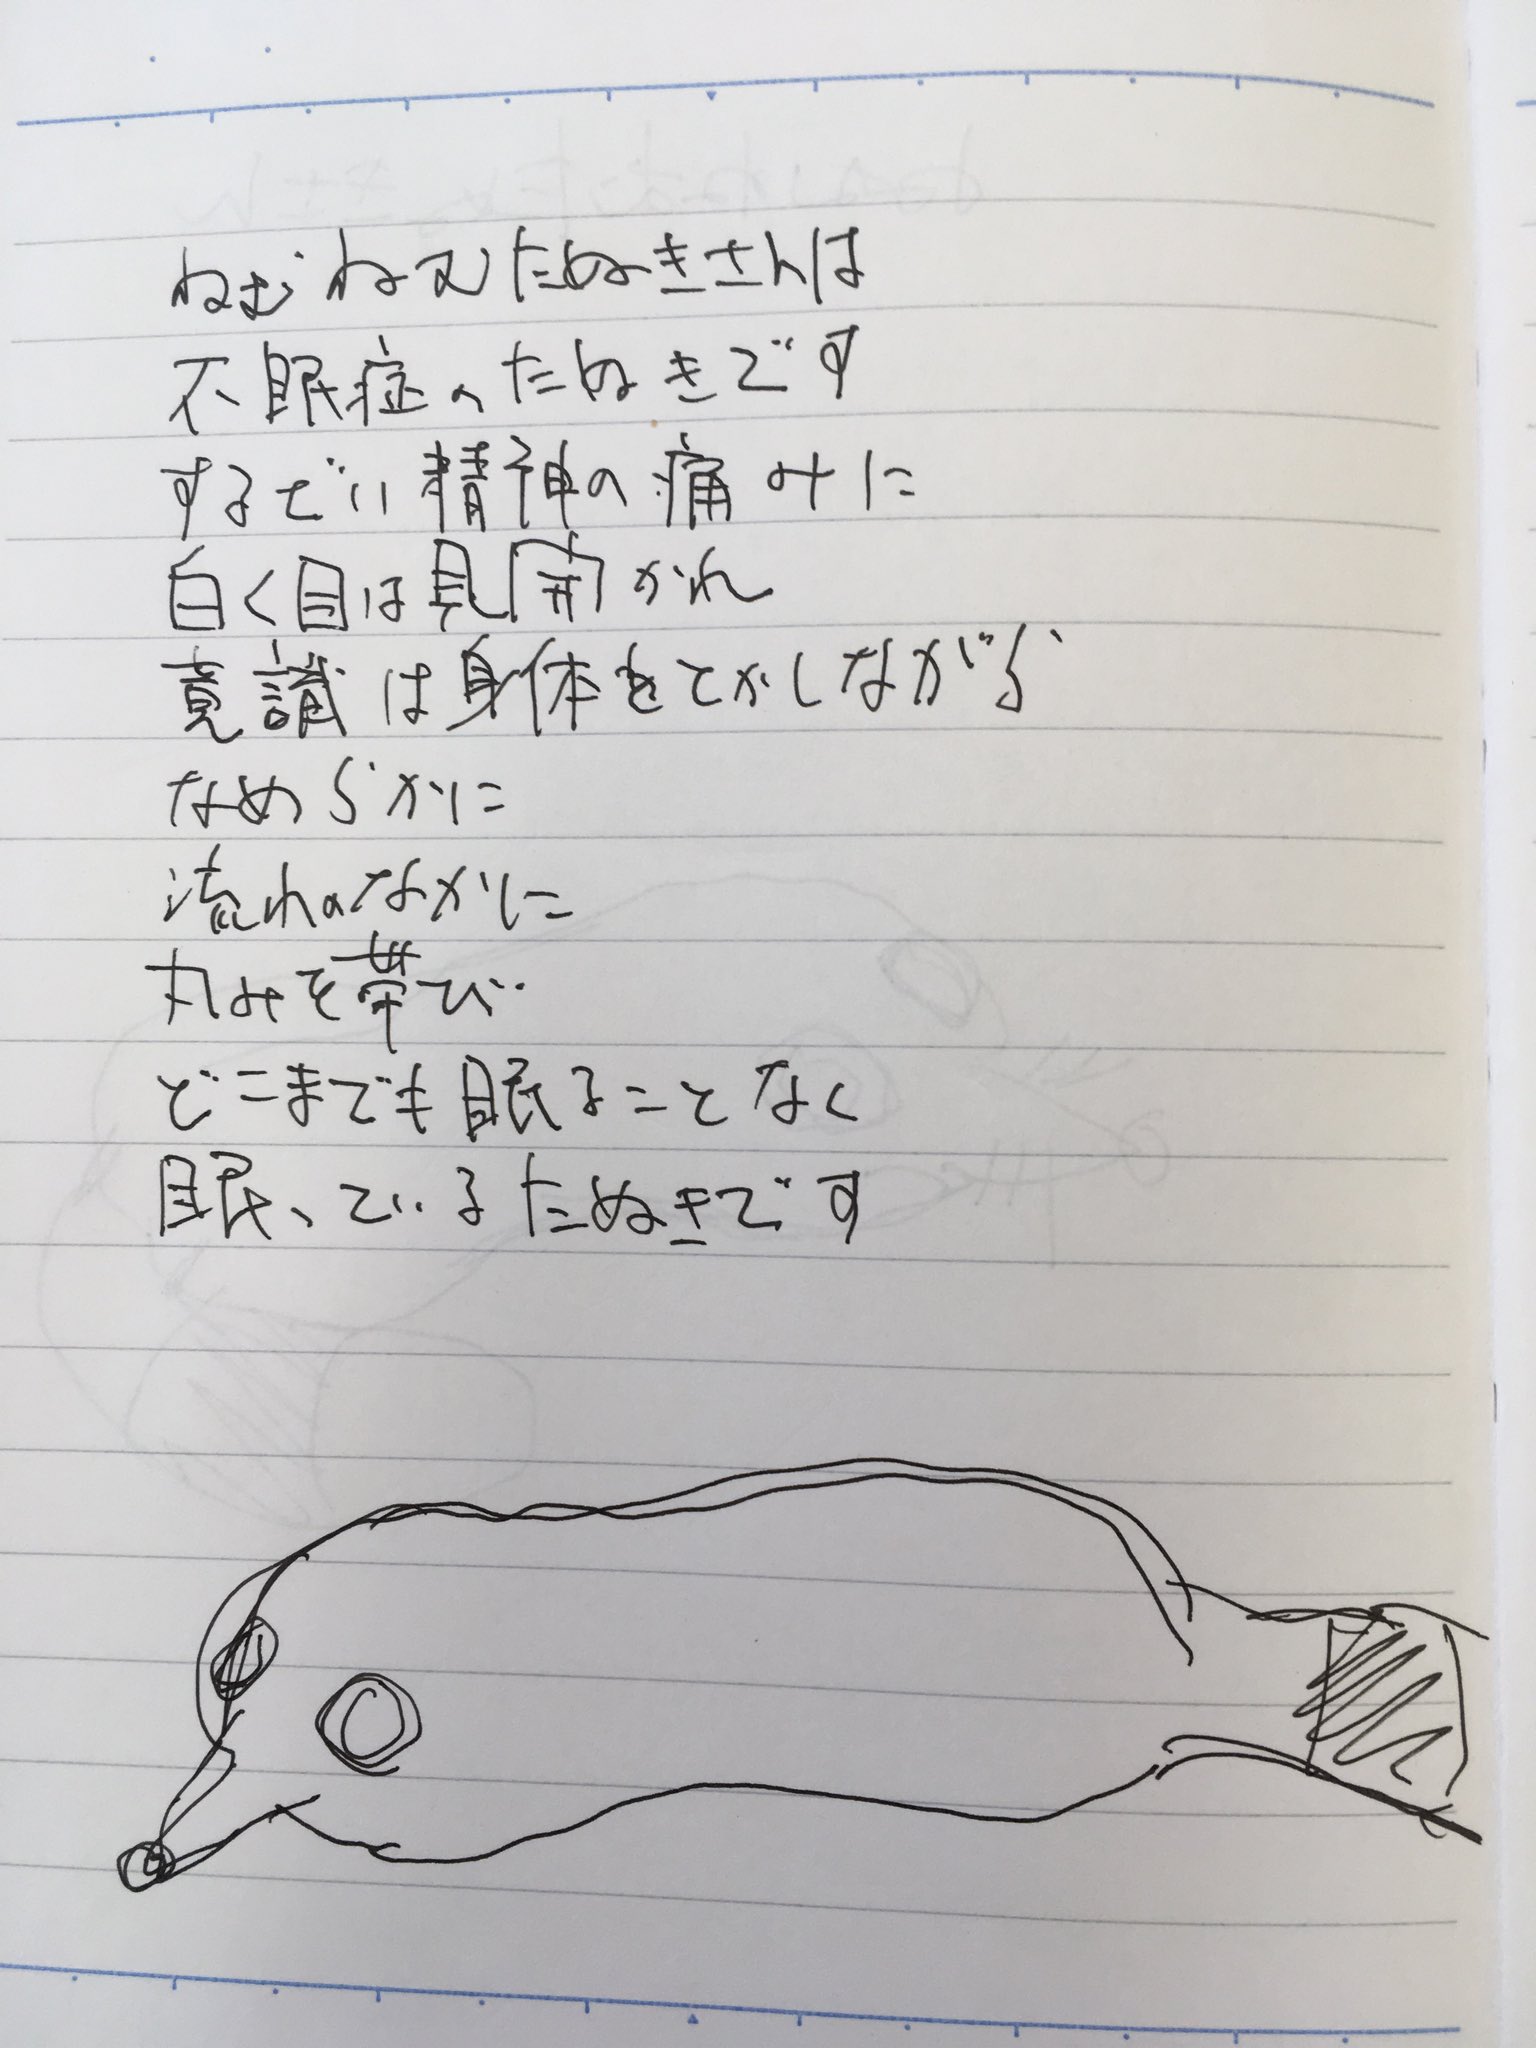 ねむねむたぬきさんは
不眠症のたぬきです
するどい精神の痛みに
白く目は見開かれ
意識は身体をとかしながら
なめらかに
流れのなかに
丸みを帯び
どこまでも眠ることなく
眠っているたぬきです